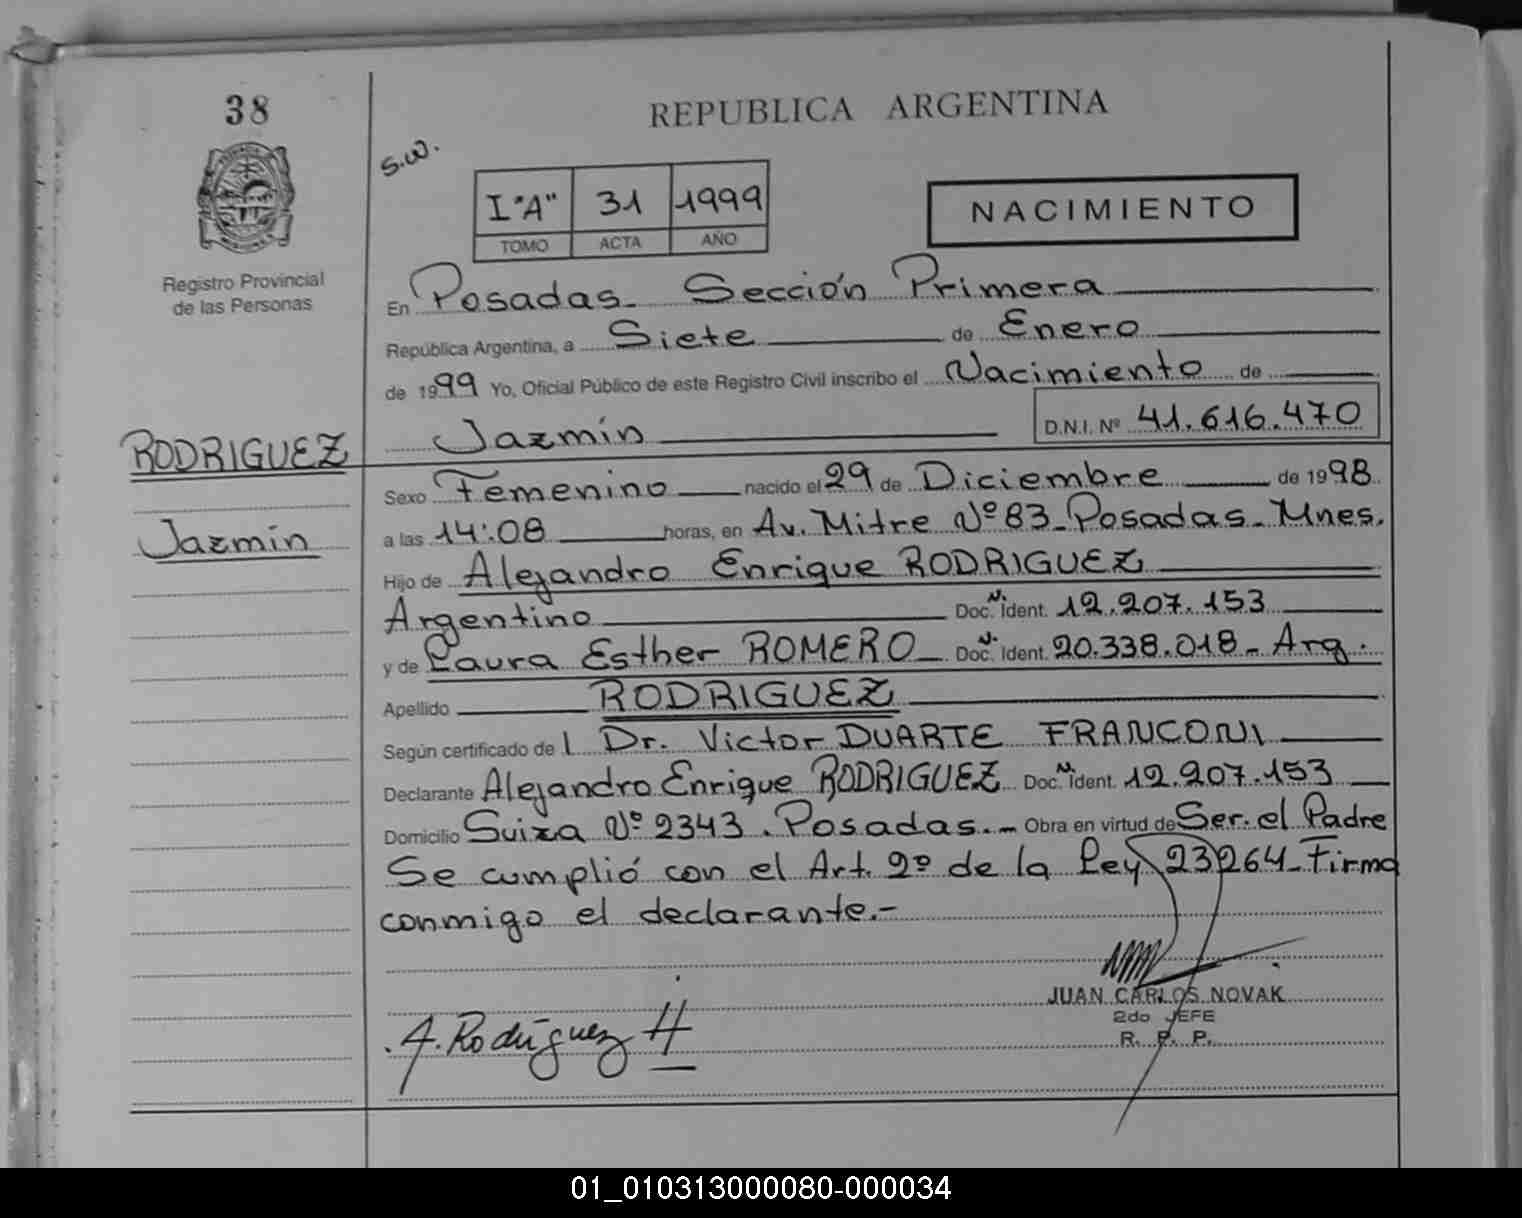 38
REPUBLICA ARGENTINA
S.W.
I "A" 31 1999
TOMO ACTA AÑO
NACIMIENTO
Registro Provincial
de las Personas
En Posadas - Sección Primera
República Argentina, a Siete de Enero
de 1999 Yo, Oficial Público de este Registro Civil inscribo el Nacimiento de
Jazmín D.N.I. Nº 41.616.470
RODRIGUEZ
Jazmín
Sexo Femenino nacido el 29 de Diciembre de 1998
a las 14:08 horas, en Av. Mitre Nº 83 - Posadas - Mnes.
Hijo de Alejandro Enrique RODRIGUEZ
Argentino Doc. N. Ident. 12.207.153
y de Laura Esther ROMERO Doc. N. Ident. 20.338.018 - Arg.
Apellido RODRIGUEZ
Según certificado de l Dr. Victor DUARTE FRANCONI
Declarante Alejandro Enrique RODRIGUEZ Doc. N. Ident. 12.207.153
Domicilio Suiza Nº 2343 . Posadas.- Obra en virtud de Ser el Padre
Se cumplió con el Art. 2º de la Ley 23264 - Firma
conmigo el declarante.-
JUAN CARLOS NOVAK
2do JEFE
R. P. P.
A. Rodríguez H
01_010313000080-000034